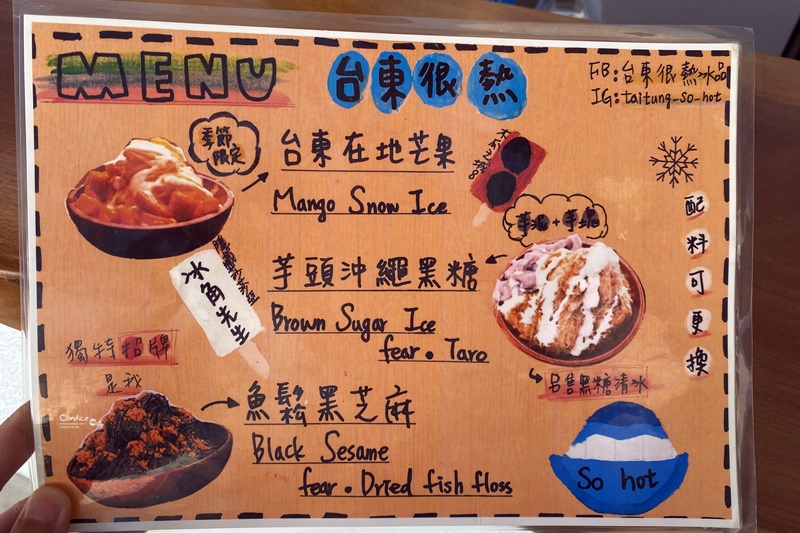 MENU
台東很熱
FB:台東很熱冰品
IG:taitung_so_hot
季節
限定
台東在地芒果
Mango Snow Ice
配料可更換
芋泥+芋塊
芋頭沖繩黑糖
Brown Sugar Ice
fear. Taro
冰角先生
另售黑糖清冰
獨特招牌
是我
魚鬆黑芝麻
Black Sesame
fear. Dried fish floss
So hot
Candice